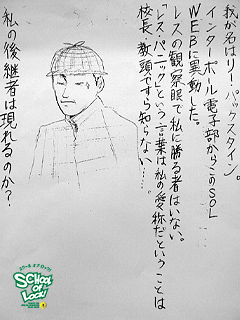 我が名はリー・バックスタイン。
インターポール電子部からこのSOL
WEBに異動した。
レスの観察眼で私に勝る者はいない。
「レス・パニック」という言葉は私の愛称だということは
校長、教頭ですら知らない……。
私の後継者は現れるのか?
SCHOOL
OF
LOCK!